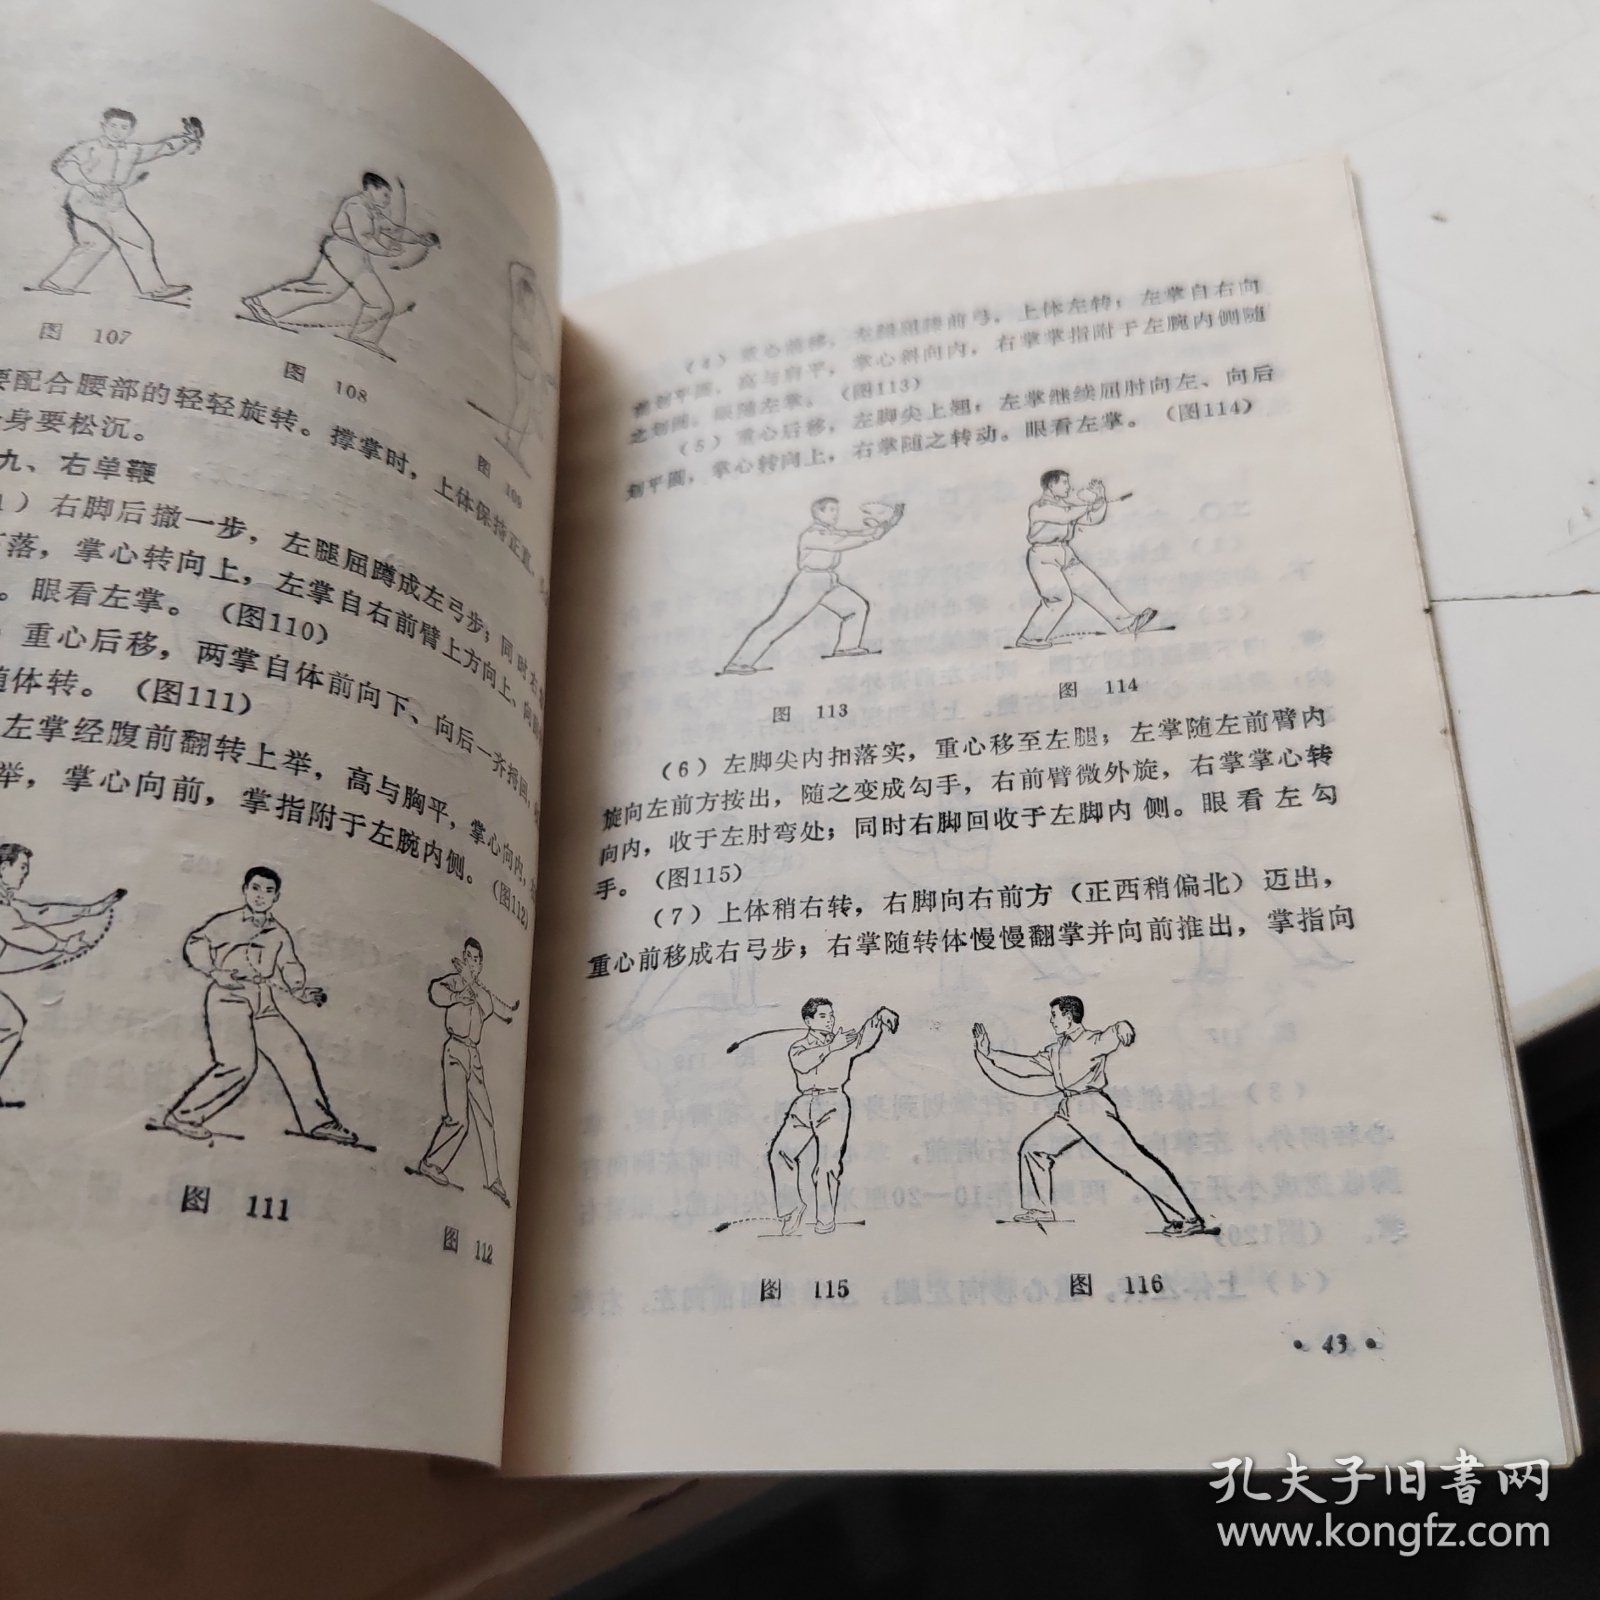 图 107
图 108
图 109
要配合腰部的轻轻旋转。撑掌时，上体保持正直，
身要松沉。
九、右单鞭
）右脚后撤一步，左腿屈蹲成左弓步；同时右
落，掌心转向上，左掌自右前臂上方向上、向
。眼看左掌。（图110）
重心后移，两掌自体前向下、向后一齐捋回，
随体转。（图111）
左掌经腹前翻转上举，高与胸平，掌心向内，
举，掌心向前，掌指附于左腕内侧。（图112）
图 111
图 112
（4）重心前移，左腿屈膝前弓，上体左转；左掌自右向
前划平圆，高与肩平，掌心斜向内，右掌掌指附于左腕内侧随
之划圆。眼随左掌。（图113）
（5）重心后移，左脚尖上翘；左掌继续屈肘向左、向后
划平圆，掌心转向上，右掌随之转动。眼看左掌。（图114）
图 113
图 114
（6）左脚尖内扣落实，重心移至左腿；左掌随左前臂内
旋向左前方按出，随之变成勾手，右前臂微外旋，右掌掌心转
向内，收于左肘弯处；同时右脚回收于左脚内侧。眼看左勾
手。（图115）
（7）上体稍右转，右脚向右前方（正西稍偏北）迈出，
重心前移成右弓步；右掌随转体慢慢翻掌并向前推出，掌指向
图 115
图 116
• 43 •
孔夫子旧书网
www.kongfz.com